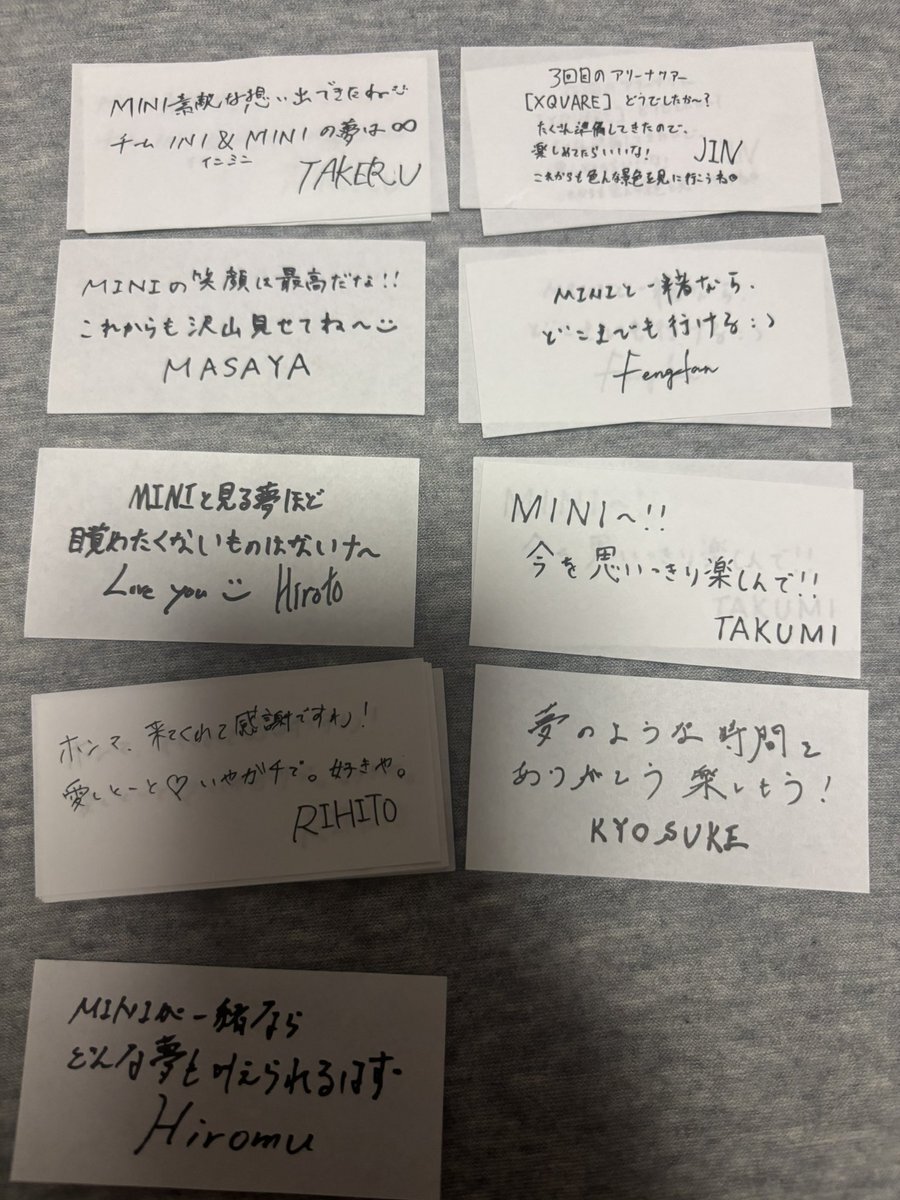 MINI素敵な想い出できたね
チーム INI & MINI の夢は∞
イニミニ
TAKERU
3回目のアリーナツアー
[XQUARE] どうでしたか〜?
たくさん準備してきたので、
楽しめてたらいいな!
JIN
これからも色んな景色を見に行こうね
MINIの笑顔は最高だな!!
これからも沢山見せてね〜
MASAYA
MINIと一緒なら、
どこまでも行ける:)
Fengfan
MINIと見る夢ほど
目覚めたくないものはないナ〜
Love you Hiroto
MINI〜!!
今を思いっきり楽しんで!!
TAKUMI
ホンマ、来てくれて感謝ですわ!
愛しとーと♡いやガチで。好きや。
RIHITO
夢のような時間を
ありがとう 楽しもう!
KYOSUKE
MINIが一緒なら
どんな夢も叶えられるはず。
Hiromu